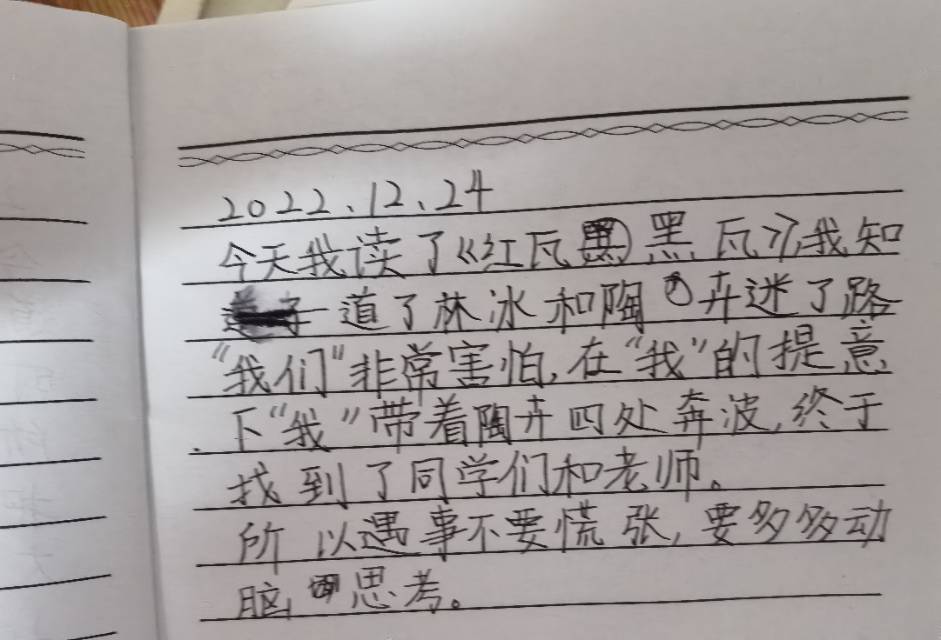 2022、12、24
今天我读了《红瓦黑瓦》，我知
道了林冰和陶卉迷了路
“我们”非常害怕，在“我”的提意
下“我”带着陶卉四处奔波，终于
找到了同学们和老师。
所以遇事不要慌张，要多多动
脑思考。